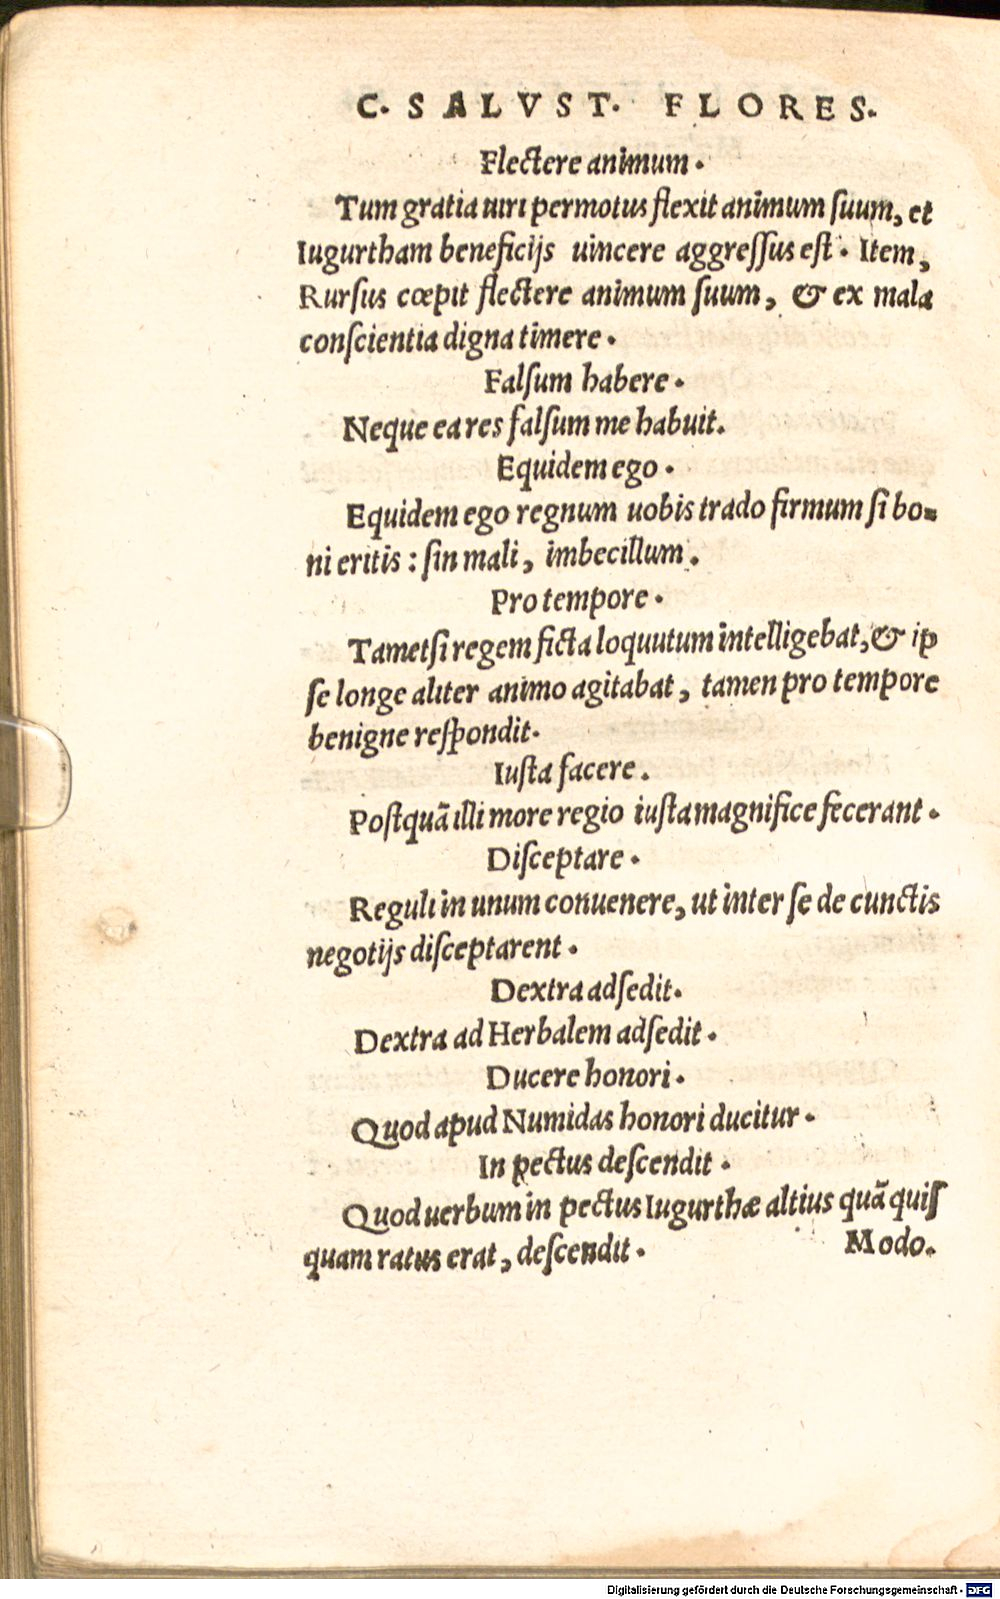 C. SALVST. FLORES.
Flectere animum.
Tum gratia uiri permotus flexit animum ſuum, et
Iugurtham beneficijs uincere aggreſſus eſt. Item,
Rurſus cœpit flectere animum ſuum, & ex mala
conſcientia digna timere.
Falſum habere.
Neque ea res falſum me habuit.
Equidem ego.
Equidem ego regnum uobis trado firmum ſi bo=
ni eritis: ſin mali, imbecillum.
Pro tempore.
Tametſi regem ficta loquutum intelligebat, & ip
ſe longe aliter animo agitabat, tamen pro tempore
benigne reſpondit.
Iuſta facere.
Poſtquã illi more regio iuſta magnifice fecerant.
Diſceptare.
Reguli in unum conuenere, ut inter ſe de cunctis
negotijs diſceptarent.
Dextra adſedit.
Dextra ad Herbalem adſedit.
Ducere honori.
Quod apud Numidas honori ducitur.
In pectus deſcendit.
Quod uerbum in pectus Iugurthæ altius quã quiſ
quam ratus erat, deſcendit. Modo.
Digitalisierung gefördert durch die Deutsche Forschungsgemeinschaft - DFG